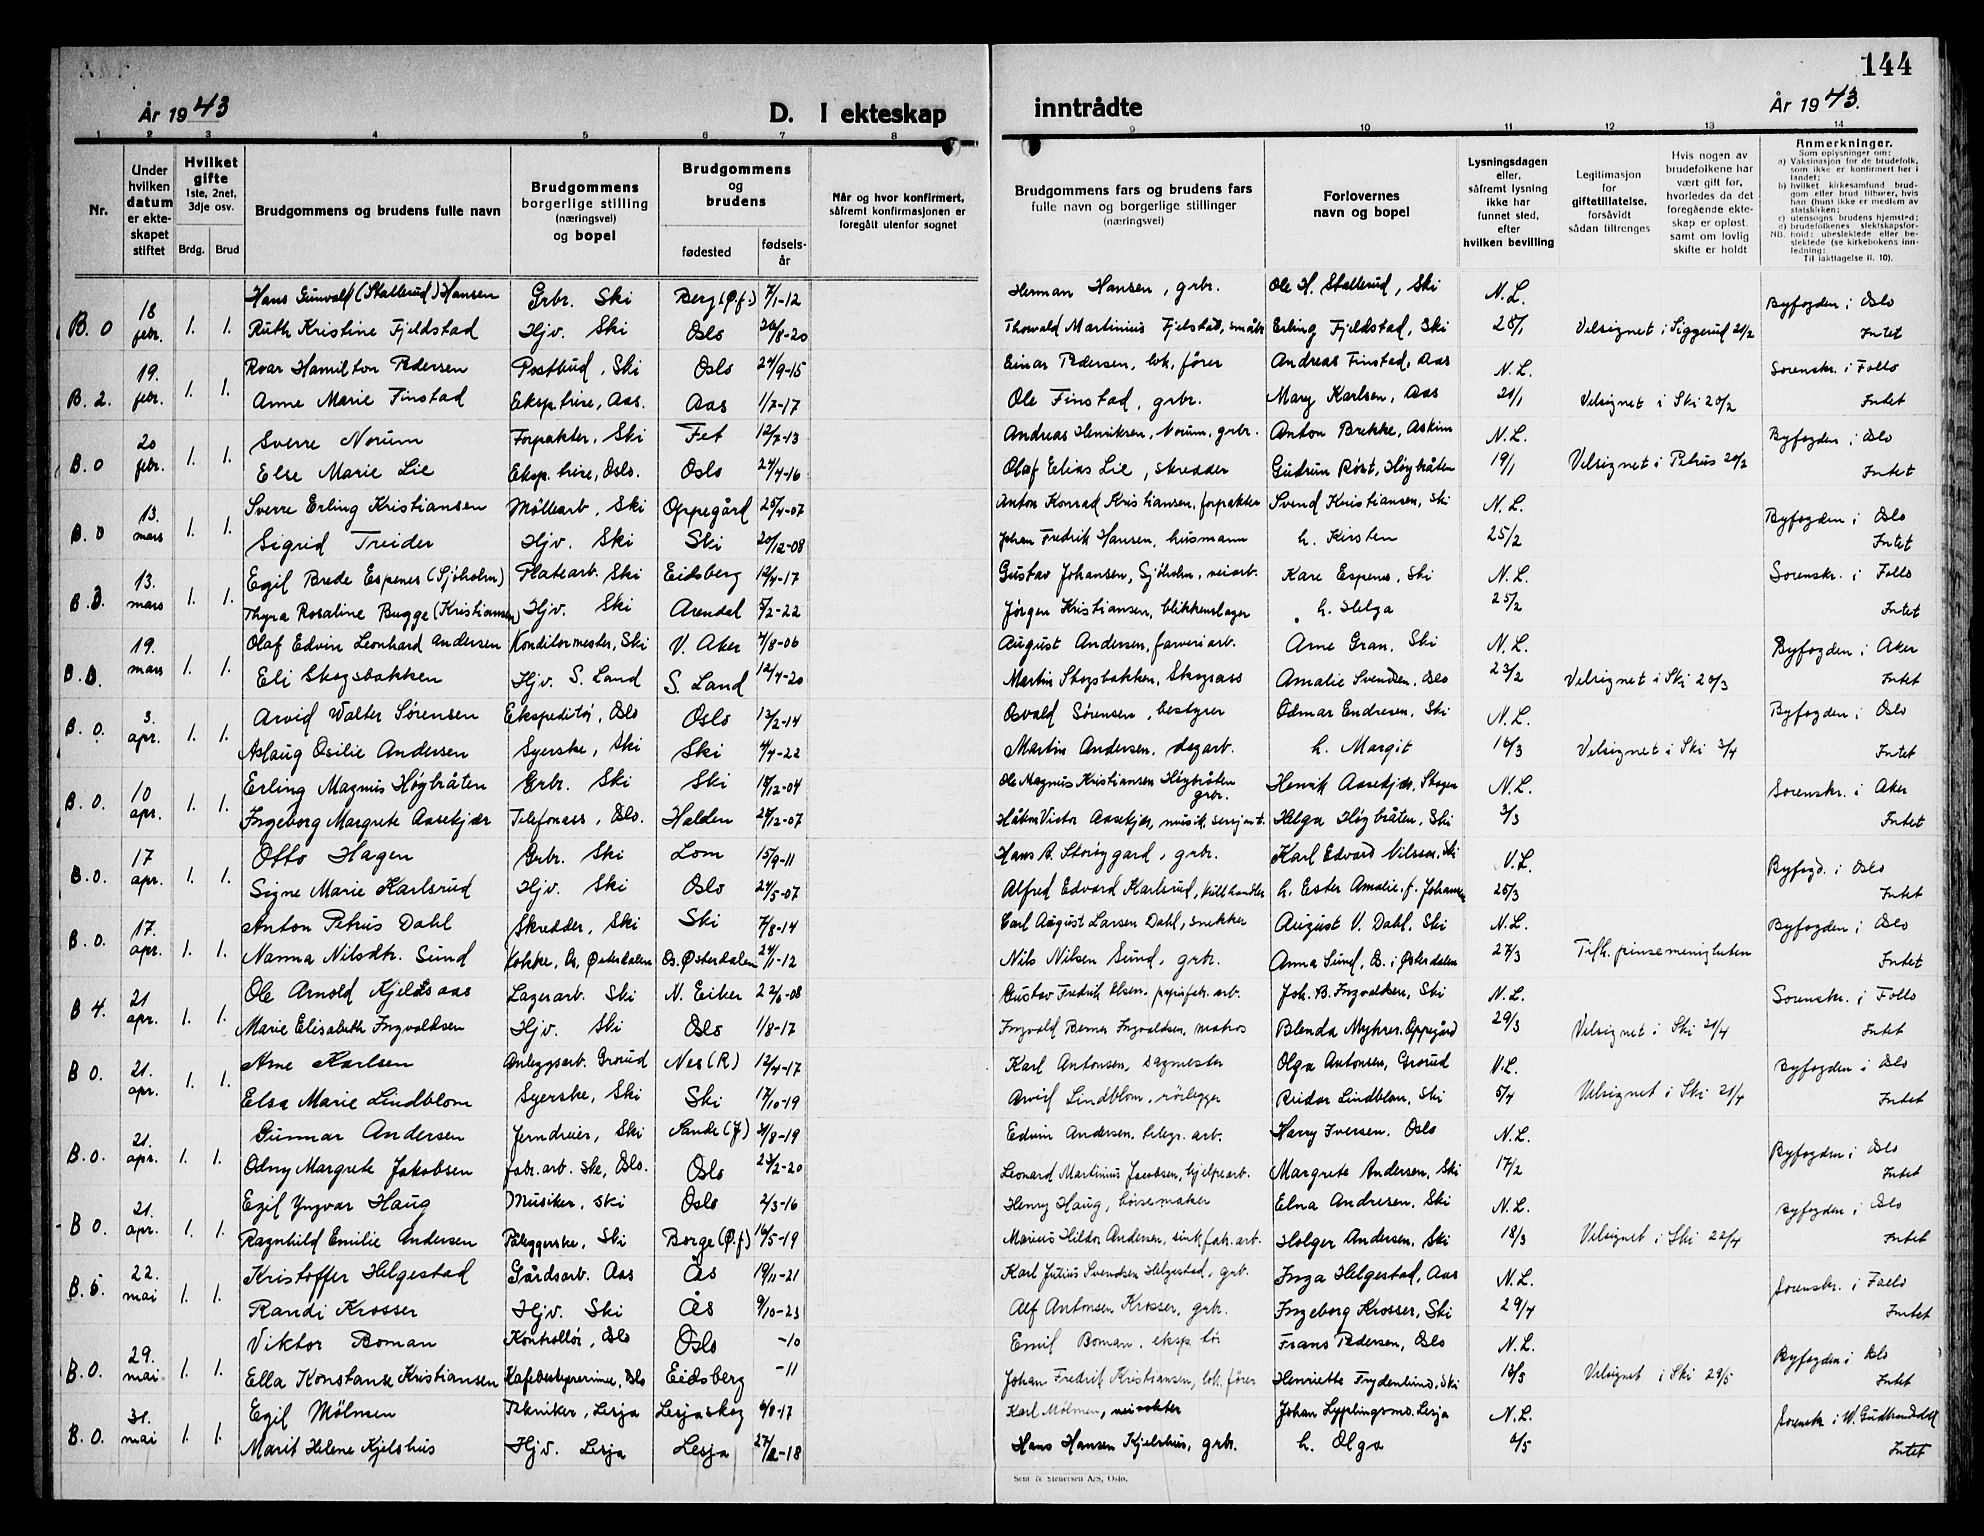 144
År 1943
D. I ekteskap
inntrådte
År 1943.
1 2 3 4 5 6 7 8 9 10 11 12 13 14
Nr.
Under hvilken datum er ekteskapet stiftet
Hvilket gifte 1ste, 2net, 3dje osv.
Brdg. Brud
Brudgommens og brudens fulle navn
Brudgommens borgerlige stilling (næringsvei) og bopel
Brudgommens og brudens
fødested
fødselsår
Når og hvor konfirmert, såfremt konfirmasjonen er foregått utenfor sognet
Brudgommens fars og brudens fars fulle navn og borgerlige stillinger (næringsvei)
Forlovernes navn og bopel
Lysningsdagen eller, såfremt lysning ikke har funnet sted, efter hvilken bevilling
Legitimasjon for giftetillatelse, forsåvidt sådan tiltrenges
Hvis nogen av brudefolkene har vært gift før, hvorledes da det foregående ekteskap er opløst, samt om lovlig skifte er holdt
Anmerkninger.
Som oplysninger om:
a) Vaksinasjon for de brudefolk, som ikke er konfirmert her i landet;
b) hvilket kirkesamfund brudgom eller brud tilhører, hvis han (hun) ikke er medlem av statskirken;
c) utensogns brudens hjemsted;
d) brudefolkenes slektskapsforhold: ubeslektede eller beslektede (se kirkebokens innledning:
NB.
Til iakttagelse II. 10).
Hans Gunvald (Stallerud) Hansen Grbr. Ski Berg (Ø.f.) 7/1-12 Herman Hansen, grbr. Ole H. Stallerud, Ski N.L. Byfogden i Oslo
B. 0 18 febr. 1. 1. Ruth Kristine Fjeldstad Hjv. Ski Oslo 26/8-20 Thorvald Martinius Fjelstad, småbr Erling Fjeldstad, Ski 28/1 Velsignet i Siggerud 21/2 Intet
Roar Hamilton Pedersen Postbud, Ski Oslo 24/9-15 Einar Pedersen, lok. fører Andreas Finstad, Aas N.L. Sorenskr. i Follo
B. 2. 19. febr. 1. 1. Anne Marie Finstad Eksp.trise, Aas. Aas 1/7-17 Ole Finstad, grbr. Mary Karlsen, Aas 21/1 Velsignet i Ski 20/2 Intet
Sverre Norum Forpakter, Ski Fet 12/7-13 Andreas Henriksen, Norum, grbr. Anton Brekke, Askim N.L. Byfogden i Oslo
B. 0 20 febr. 1. 1. Else Marie Lie Eksp. trise, Oslo. Oslo 24/4-16 Olaf Elias Lie, skredder Gudrun Røst, Høybråten 19/1 Velsignet i Petrus 20/2 Intet
Sverre Erling Kristiansen Møllearb, Ski Oppegård 25/4-07 Anton Konrad Kristiansen, forpakter Svend Kristiansen, Ski N.L. Byfogden i Oslo
B. 0 13. mars 1. 1. Sigrid Treider Hjv. Ski Ski 20/12-08 Johan Fredrik Hansen, husmann h. Kirsten 25/2 Intet
Egil Brede Espenes (Sjøholm) Platearb. Ski Eidsberg 12/4-17 Gustav Johansen, Sjøholm, veiarb. Kare Espenes, Ski N.L. Sorenskr. i Follo
13. mars 1. 1. Thyra Rosaline Bugge (Kristiansen) Hjv. Ski Arendal 5/2-22 Jørgen Kristiansen, blikkenslager h. Helga 25/2 Intet
Olaf Edvin Leonhard Andersen Konditormester, Ski V. Aker 4/8-06 August Andersen, farveriarb. Arne Gran, Ski N.L. Byfogden i Aker
19. mars 1. 1. Eli Skogsbakken Hjv. S. Land S. Land 12/4-20 Martin Skogsbakken, Skogsass Amalie Svendsen, Oslo 23/2 Velsignet i Ski 20/3 Intet
Arvid Walter Sørensen Ekspeditø, Oslo Oslo 13/2-14 Osvald Sørensen, bestyrer Odmar Endresen, Ski N.L. Byfogden i Oslo
B. 0. 3. apr. 1. 1. Aslaug Osilie Andersen Syerske, Ski Ski 4/4-22 Martin Andersen, dagarb. h. Margit 16/3 Velsignet i Ski 3/4 Intet
Erling Magnus Høybråten Grbr. Ski Ski 19/12-04 Ole Magnus Kristiansen Høybråten grbr. Henrik Aasekjær, Skogen N.L. Sorenskr. i Aker
B. 0. 10 apr. 1. 1. Ingeborg Margrete Aasekjær Telefonass, Oslo. Halden 28/12-07 Håkon Victor Aasekjær, musik. sersjant. Helga Høybråten, Ski 3/3 Intet
Otto Hagen Grbr. Ski Lom 15/9-11 grbr. Karl Edvard Nilssen, Ski N.L. Byfogd. i Oslo
B. 0. 17 apr. 1. 1. Signe Marie Karlsrud Hjv. Ski Oslo 24/5-07 Alfred Edvard Karlsrud, kullhandler h. Ester Amalie f. Johansen 26/3 Intet
Anton Petrus Dahl Skredder, Ski Ski 7/8-14 Carl August Larsen Dahl, snekker August V. Dahl, Ski N.L. Byfogden i Oslo
B. 0. 17. apr. 1. 1. Nanna Nilsdtr. Sund Kokke, Os, Østerdalen Os. Østerdalen 24/1-12 Nils Nilsen Sund, grbr. Anna Sund, Os. i Østerdalen 27/3 Tilh. pinsemenigheten Intet
Ole Arnold Kjeldsaas Lagerarb. Ski N. Eiker 22/6-08 Gustav Fredrik Olsen, papirfabr. arb. Joh. B. Ingvoldsen, Ski N.L. Sorenskr. i Follo
B 4. 21 apr. 1. 1. Marie Elisabeth Ingvoldsen Hjv. Ski Oslo 1/8-17 Ingvald Berner Ingvoldsen, matros Blenda Myhrer, Oppegård 29/3 Velsignet i Ski 21/4 Intet
Arne Karlsen Anleggsarb. Grorud Nes (R) 12/4-17 Karl Antonsen, sagmester Olga Antonsen, Grorud N.L. Byfogden i Oslo
B 0. 21. apr. 1. 1. Elsa Marie Lindblom Syerske, Ski Ski 17/10-19 Arvid Lindblom, rørlegger Reidar Lindblom, Ski 5/4 Velsignet i Ski 21/4 Intet
Gunnar Andersen Jerndreier, Ski Sande (J) 31/8-19 Edvin Andersen, telegr. arb. Harry Iversen, Oslo N.L. Byfogden i Oslo
B. 0. 21. apr. 1. 1. Odny Margrete Jakobsen fabr. arb. ske, Oslo. Oslo 23/2-20 Leonard Martinius Jacobsen, hjelpearb. Margrete Andersen, Ski 17/2 Intet
Egil Yngvar Haug Musiker, Ski Oslo 2/3-16 Henry Haug, børsemaker Elna Andresen, Ski N.L. Byfogden i Oslo
B 0. 21. apr. 1. 1. Ragnhild Emilie Andersen Påleggerske, Ski Borge (Ø.f) 16/5-19 Marius Hildor Andersen, sinkfabr. arb. Holger Andersen, Ski 18/3 Velsignet i Ski 22/4 Intet
Kristoffer Helgestad Gårdsarb. Aas Ås 19/11-21 Karl Julius Svendsen Helgestad, grb. Inga Helgestad, Aas N.L. Sorenskr. i Follo
B. 5. 22. mai 1. 1. Randi Krosser Hjv. Ski Ås 9/10-23 Alf Antonsen Krosser, grbr. Ingeborg Krosser, Ski 29/4 Intet
Viktor Boman Kontrollør, Oslo Oslo -10 Emil Boman, eksp. tør Frans Pedersen, Oslo N.L. Byfogden i Oslo
B. 0. 29. mai 1. 1. Ella Konstanse Kristiansen Kafebestyrerinne, Oslo Eidsberg -11 Johan Fredrik Kristiansen, lok. fører Henriette Frydenlund, Ski 13/5 Velsignet i Ski 29/5 Intet
Egil Mølmen Tekniker, Lesja Lesjaskog 6/8-17 Karl Mølmen, veivokter Johan Lyplingsmo. Lesja N.L. Sorenskr i N. Gudbrandsdal
B. 0. 31. mai 1. 1. Marit Helene Kjelshus Hjv. Lesja Lesja Hans Hansen Kjelshus, grbr. h. Olga 6/5 Intet
Sem & Stenersen A/S, Oslo.